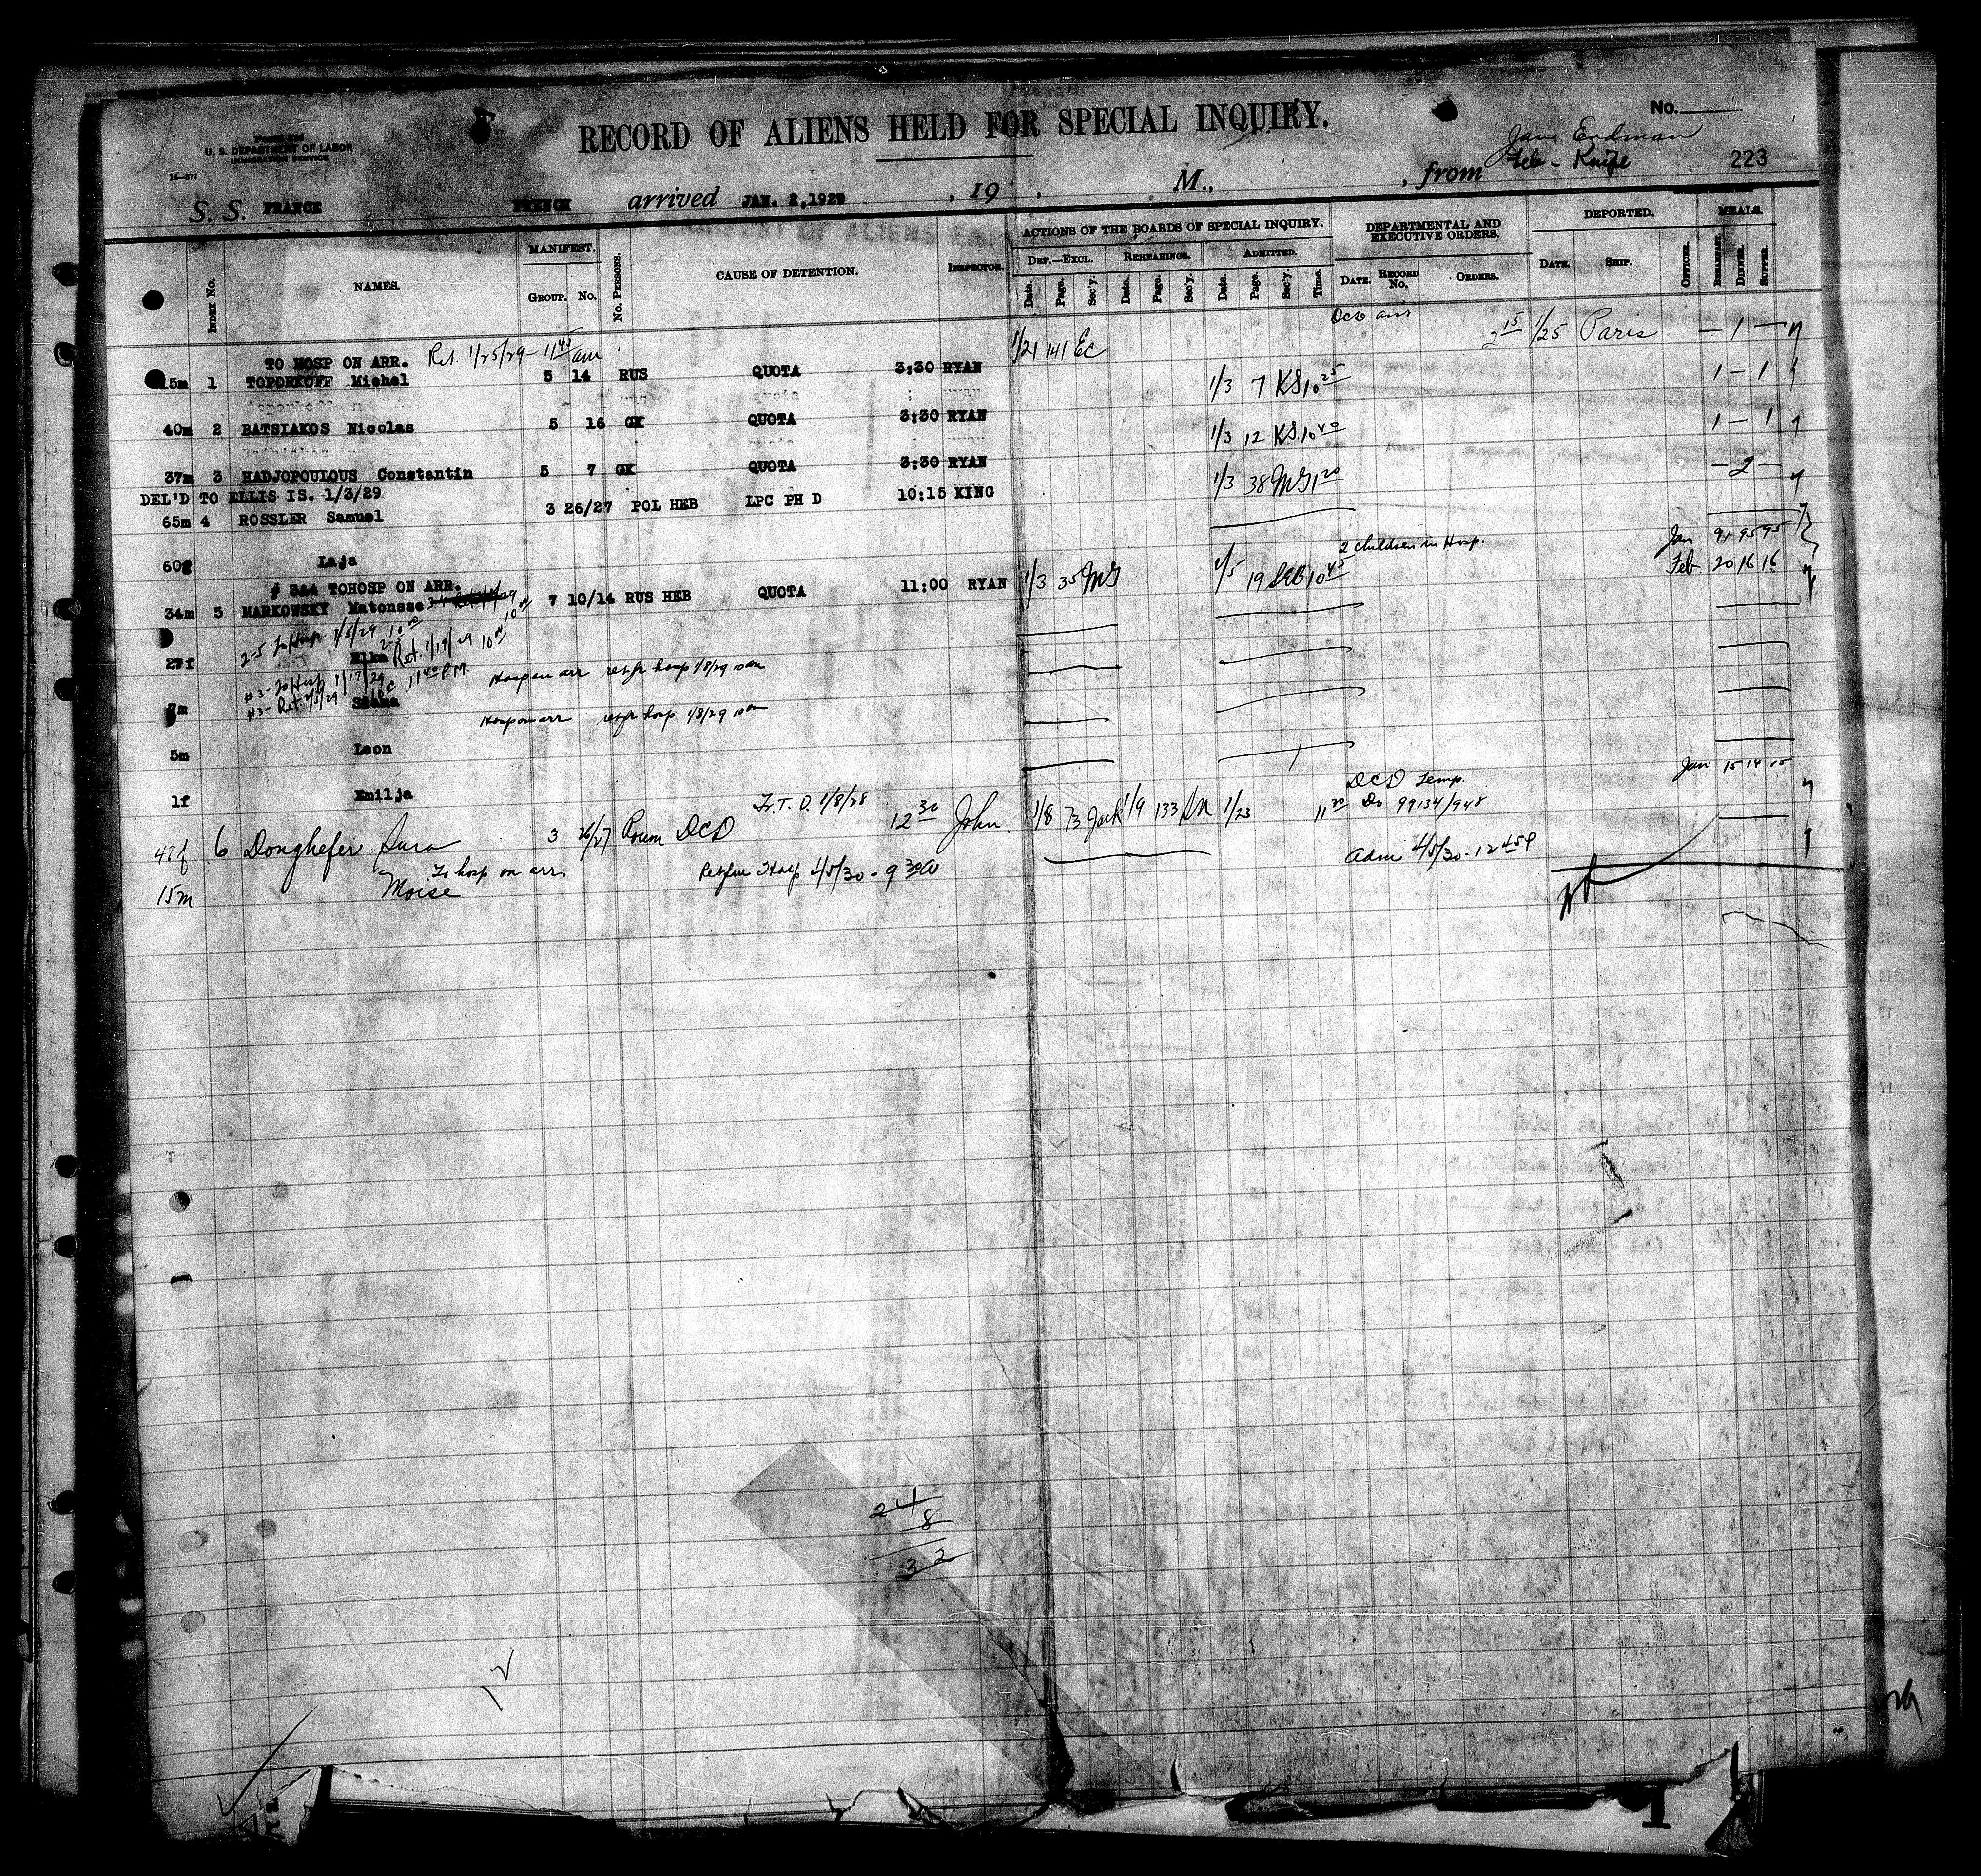 RECORD OF ALIENS HELD FOR SPECIAL INQUIRY.
No.
U. S. DEPARTMENT OF LABOR
IMMIGRATION SERVICE
14—877
Jan Erdman
Feb - Knife
223
S. S. FRANCE FRENCH arrived JAN. 2, 1929 , 19 , M., , from
INDEX No. NAMES. MANIFEST. GROUP. No. No. PERSONS. CAUSE OF DETENTION. INSPECTOR. ACTIONS OF THE BOARDS OF SPECIAL INQUIRY. DEF.—EXCL. Date. Page. Sec'y. REHEARINGS. Date. Page. Sec'y. ADMITTED. Date. Page. Sec'y. Time. DEPARTMENTAL AND EXECUTIVE ORDERS. DATE. RECORD No. ORDERS. DEPORTED. DATE. SHIP. OFFICER. MEALS. BREAKFAST. DINNER. SUPPER.
TO HOSP ON ARR. Ret. 1/25/29 - 11 45 am 1/21 141 Ec 2 15 1/25 Paris — 1 —
15m 1 TOPORKOFF Michel 5 14 RUS QUOTA 3:30 RYAN
1/3 7 KS 10 25 1 — 1
40m 2 BATSIAKOS Nicolas 5 16 GK QUOTA 3:30 RYAN
1/3 12 KS. 10 40 1 — 1
37m 3 HADJOPOULOUS Constantin 5 7 GK QUOTA 3:30 RYAN
DEL'D TO ELLIS IS. 1/3/29 1/3 38 MG 1 20 — 2 —
65m 4 ROSSLER Samuel 3 26/27 POL HEB LPC PH D 10:15 KING
60f Laja
2 children in Hosp. Jan 91 95 95
# 3&4 TOHOSP ON ARR. Feb. 20 16 16
34m 5 MARKOWSKY Matonsse 7 10/14 RUS HEB QUOTA 11:00 RYAN 1/3 35 MG 2/5 19 10 45
2-5 To Hosp 1/5/29 10
27f Elka Ret. 1/19/29 10
#3 - To Hosp 1/17/29 Hosp on arr ret fr hosp 1/8/29 10 am
#3 - Ret. 2/5/29 11 40 P.M.
7m
Hosp on arr ret fr hosp 1/8/29 10 am
5m Leon
1f Emilja
Jan 15 14 15
Tr. T. D. 1/8/28 DCD Temp.
47f 6 Donghefer Sura 3 26/27 Roum DCD 12 30 John. 1/8 73 Jack 1/9 133 1/23 11 30 Do 99134/948
To hosp on arr. Ret fm Hosp 4/5/30 - 9 30 Adm 4/5/30 - 12 45 P
15m Moise
24
8
32